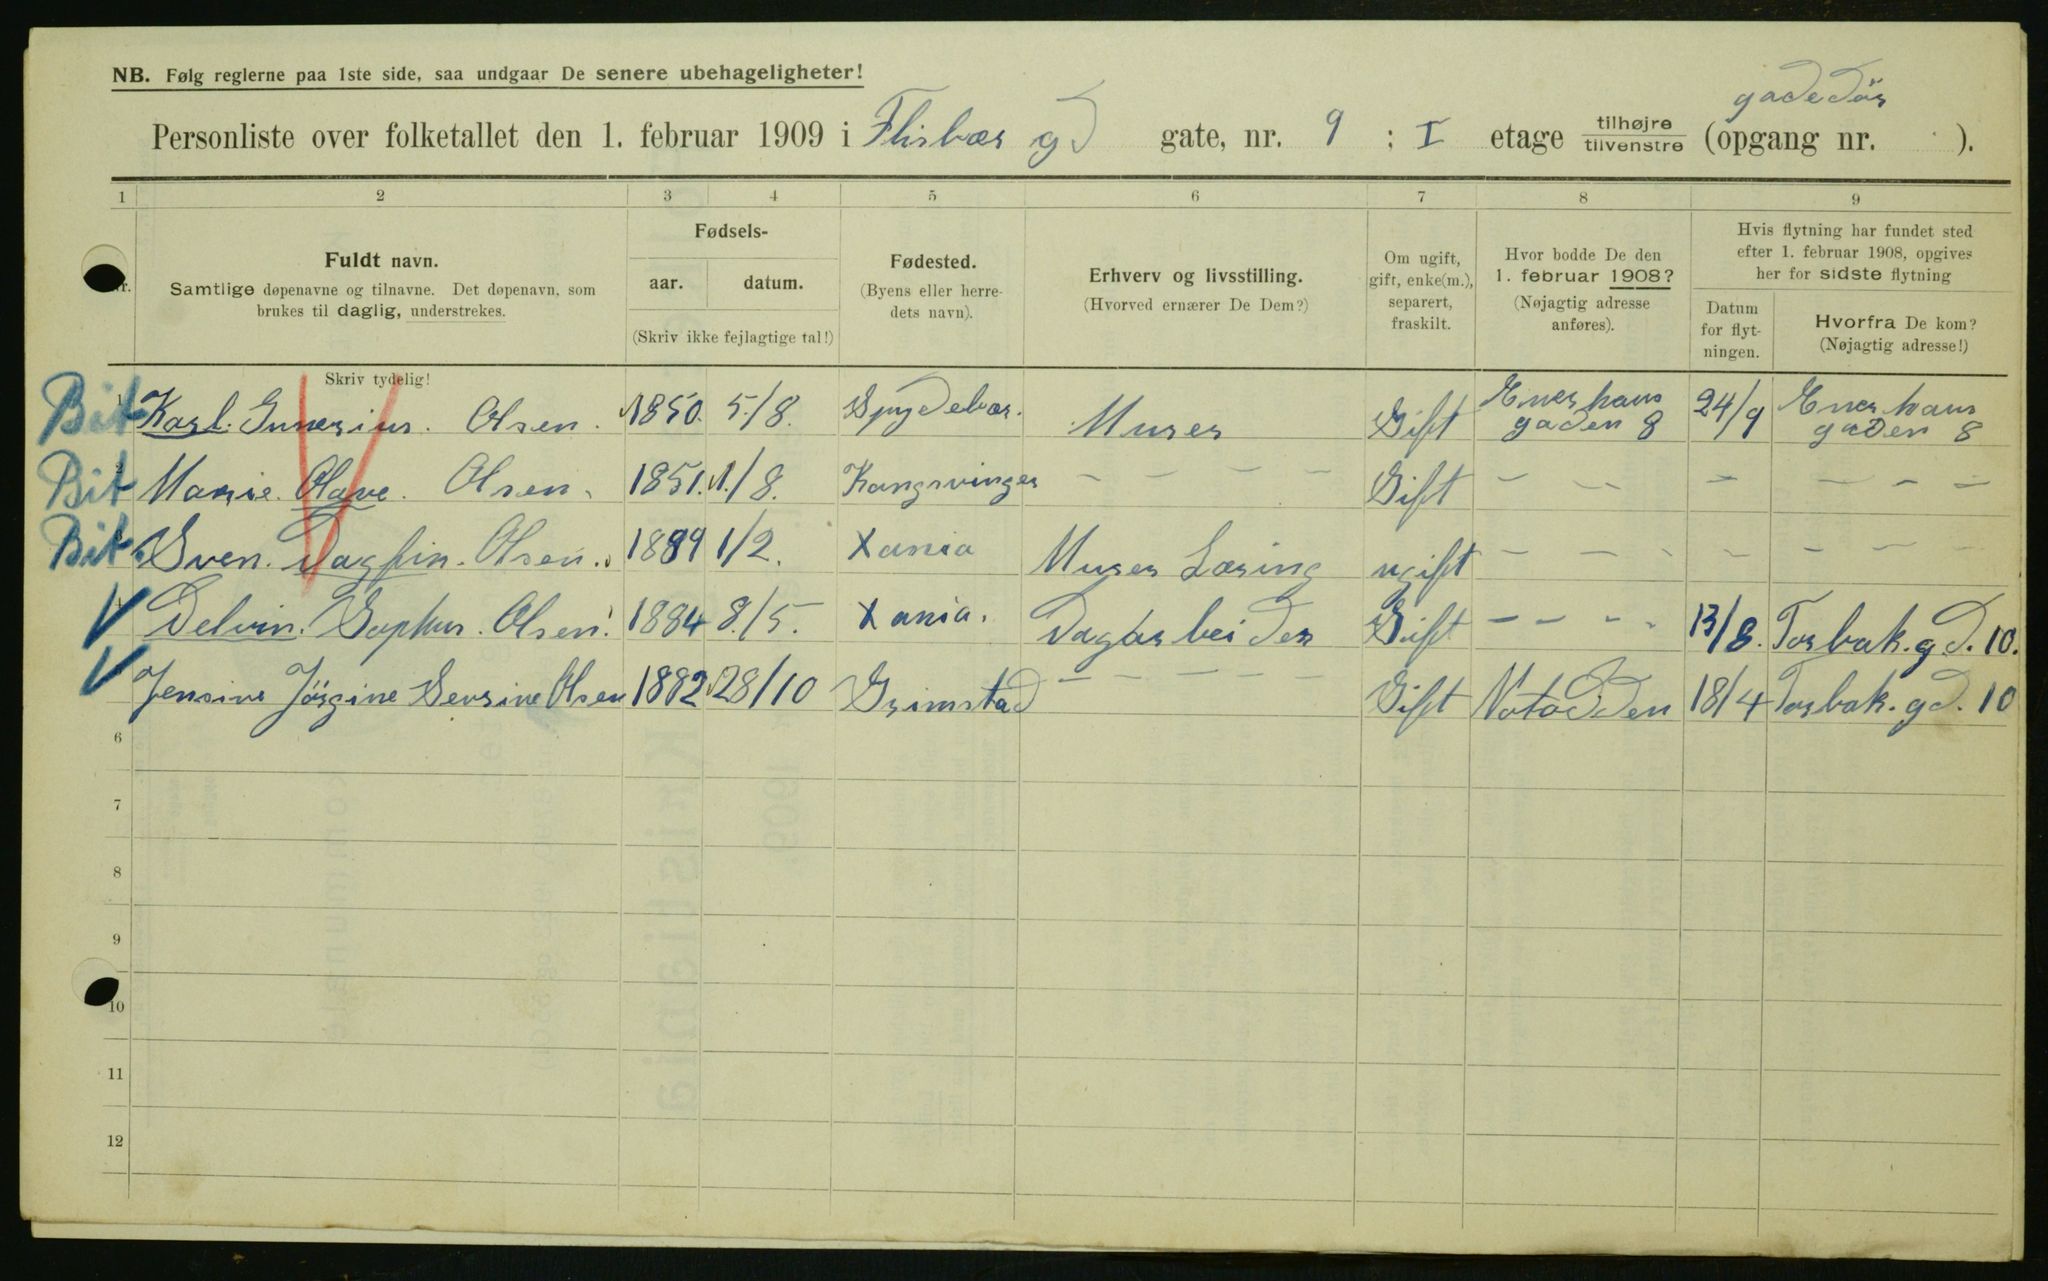 NB. Følg reglerne paa 1ste side, saa undgaar De senere ubehageligheter!
gadedør
Personliste over folketallet den 1. februar 1909 i Flisbær gd gate, nr. 9 : I etage tilhøjre/tilvenstre (opgang nr. ).
1 2 3 4 5 6 7 8 9
Nr.
Fuldt navn.
Samtlige døpenavne og tilnavne. Det døpenavn, som
brukes til daglig, understrekes.
Skriv tydelig!
Fødsels-
aar. datum.
(Skriv ikke fejlagtige tal!)
Fødested.
(Byens eller herre-
dets navn).
Erhverv og livsstilling.
(Hvorved ernærer De Dem?)
Om ugift,
gift, enke(m.),
separert,
fraskilt.
Hvor bodde De den
1. februar 1908?
(Nøjagtig adresse
anføres).
Hvis flytning har fundet sted
efter 1. februar 1908, opgives
her for sidste flytning
Datum
for flyt-
ningen.
Hvorfra De kom?
(Nøjagtig adresse!)
Bit 1 Karl. Gunerius. Olsen. 1850. 5./8. Spydebær. Murer Gift Enerhaugaden 8 24/9 Enerhaugaden 8
Bit 2 Marie. Olave. Olsen. 1851. 1./8. Kongsvinger – – – – Gift – – – – – – –
Bit. Sven. Dagfin. Olsen. 1889 1/2. Xania Murer Læring ugift – – – – – – –
V 4 Delvin. Sophus. Olsen. 1884 8./5. Xania. Dagarbeider Gift – – – – 13/8. Torbak. gd. 10.
V Jensine Jörgine Sevrine Olsen 1882 28/10 Grimstad – – – – – Gift Notodden 18/4 Torbak. gd. 10
6
7
8
9
10
11
12